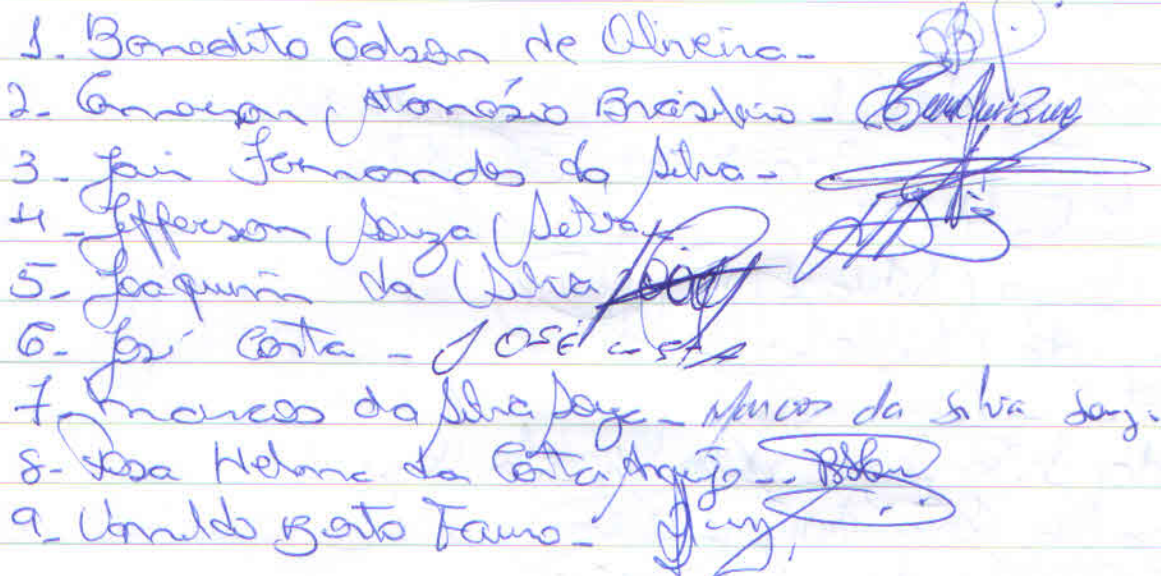 1. Benedito Edson de Oliveira -
2- Emerson Atanásio Brasileiro -
3 - Jair Fernandes da Silva -
4 - Jefferson Souza Silva
5- Joaquim da Silva
6- José Costa - JOSÉ COSTA
7- Marcos da Silva Souza - Marcos da Silva Souz.
8- Rosa Helena da Costa Araújo -
9- Berto Fauro -